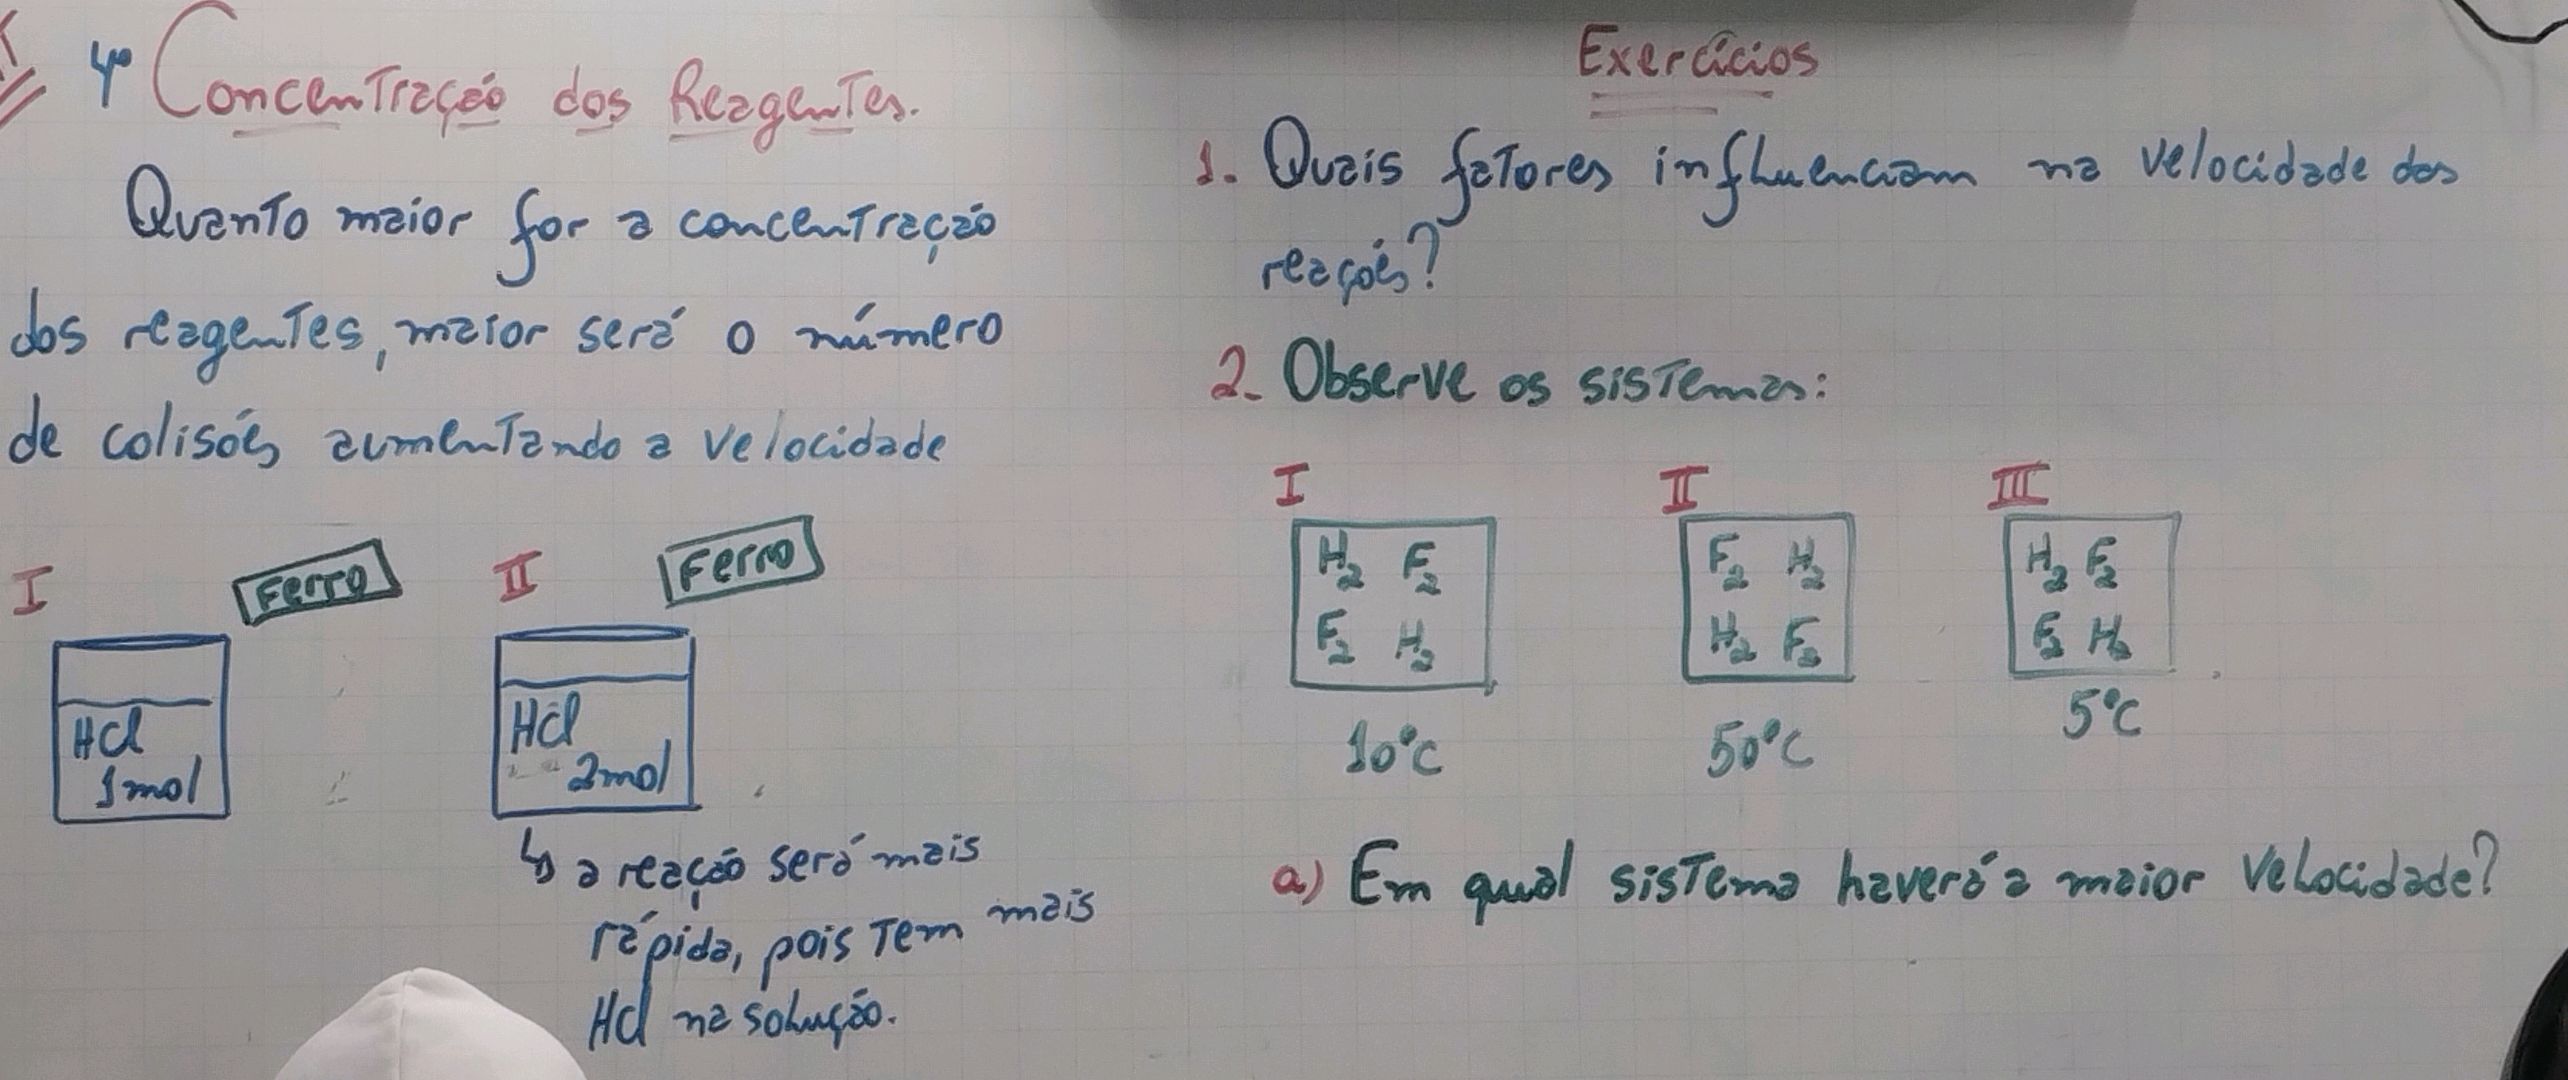 4º Concentração dos Reagentes.
Quanto maior for a concentração
dos reagentes, maior será o número
de colisões aumentando a velocidade
I Ferro II Ferro
HCl
1mol
HCl
2mol
↳ a reação será mais
rápida, pois tem mais
HCl na solução.
Exercícios
1. Quais fatores influenciam na velocidade das
reações?
2. Observe os sistemas:
I II III
H₂ F₂
F₂ H₂
10°C
F₂ H₂
H₂ F₂
50°C
H₂ F₂
F₂ H₂
5°C
a) Em qual sistema haverá a maior velocidade?